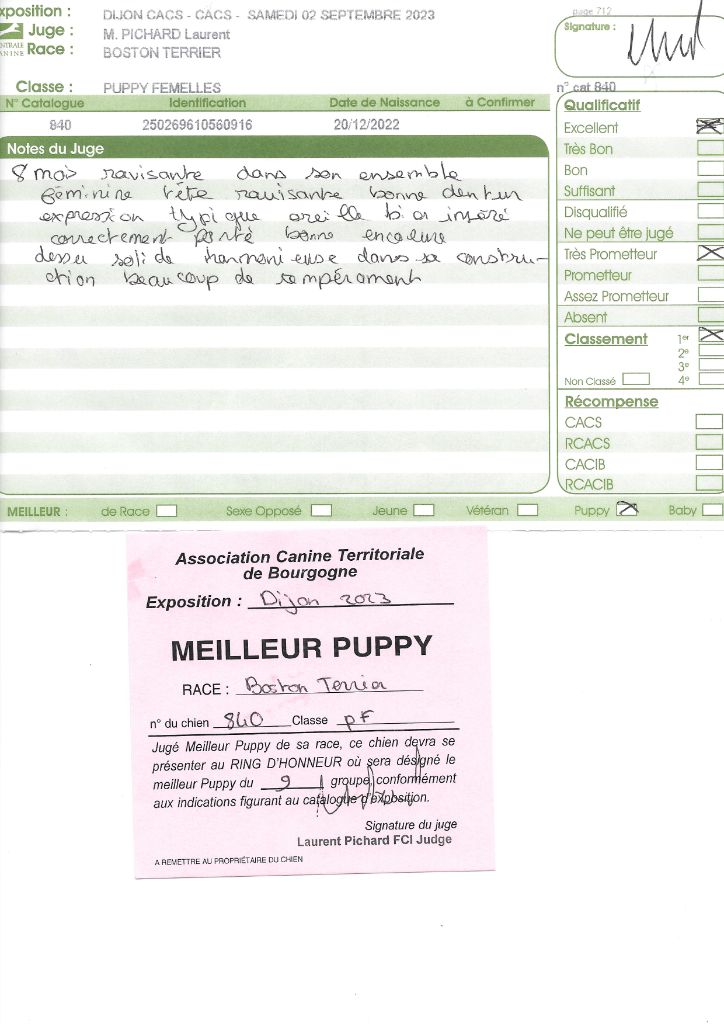 xposition : DIJON CACS - CACS - SAMEDI 02 SEPTEMBRE 2023
page 712
Juge : M. PICHARD Laurent
Signature :
NTRALE
ANINE Race : BOSTON TERRIER
Classe : PUPPY FEMELLES
n° cat 840
N° Catalogue Identification Date de Naissance à Confirmer
840 250269610560916 20/12/2022
Notes du Juge
8 mois ravisante dans son ensemble
féminine tête ravisante bonne dentur
expression typique oreille bi a inséré
correctement porté bonne encolure
dessu solide harmonieuse dans sa constru-
ction beaucoup de tempérament
Qualificatif
Excellent
Très Bon
Bon
Suffisant
Disqualifié
Ne peut être jugé
Très Prometteur
Prometteur
Assez Prometteur
Absent
Classement 1er
2e
3e
Non Classé 4e
Récompense
CACS
RCACS
CACIB
RCACIB
MEILLEUR : de Race Sexe Opposé Jeune Vétéran Puppy Baby
Association Canine Territoriale
de Bourgogne
Exposition : Dijon 2023
MEILLEUR PUPPY
RACE : Boston Terrier
n° du chien 840 Classe PF
Jugé Meilleur Puppy de sa race, ce chien devra se
présenter au RING D'HONNEUR où sera désigné le
meilleur Puppy du 9 groupe, conformément
aux indications figurant au catalogue d'exposition.
Signature du juge
Laurent Pichard FCI Judge
A REMETTRE AU PROPRIÉTAIRE DU CHIEN